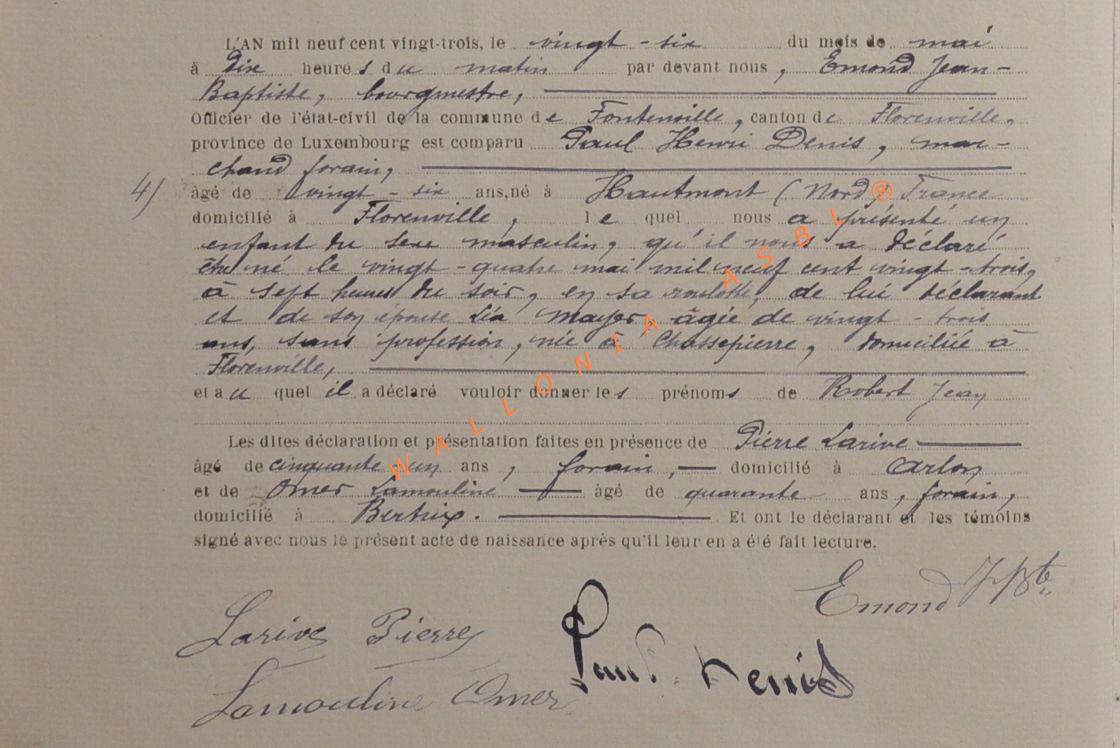 L'AN mil neuf cent vingt-trois, le vingt-six du mois de mai
à dix heures du matin par devant nous, Emond Jean-
Baptiste, bourgmestre,
Officier de l'état-civil de la commune de Fontenoille, canton de Florenville,
province de Luxembourg est comparu Paul Henri Denis, mar-
chand forain,
4) âgé de vingt-six ans, né à Hautmont (Nord) France
domicilié à Florenville, le quel nous a présenté un
enfant du sexe masculin, qu'il nous a déclaré
être né le vingt-quatre mai mil neuf cent vingt-trois,
à sept heures du soir, en sa roulotte, de lui déclarant
et de son épouse Léa Mayer, âgée de vingt-trois
ans, sans profession, née à Chassepierre, domiciliée à
Florenville,
et au quel il a déclaré vouloir donner les prénoms de Robert Jean
Les dites déclaration et présentation faites en présence de Pierre Larive
âgé de cinquante un ans, forain, domicilié à Arlon
et de Omer Lamouline âgé de quarante ans, forain,
domicilié à Bertrix. Et ont le déclarant et les témoins
signé avec nous le présent acte de naissance après qu'il leur en a été fait lecture.
WALLONIA ASBL ®
Emond J Bte
Larive Pierre
Paul Denis
Lamouline Omer